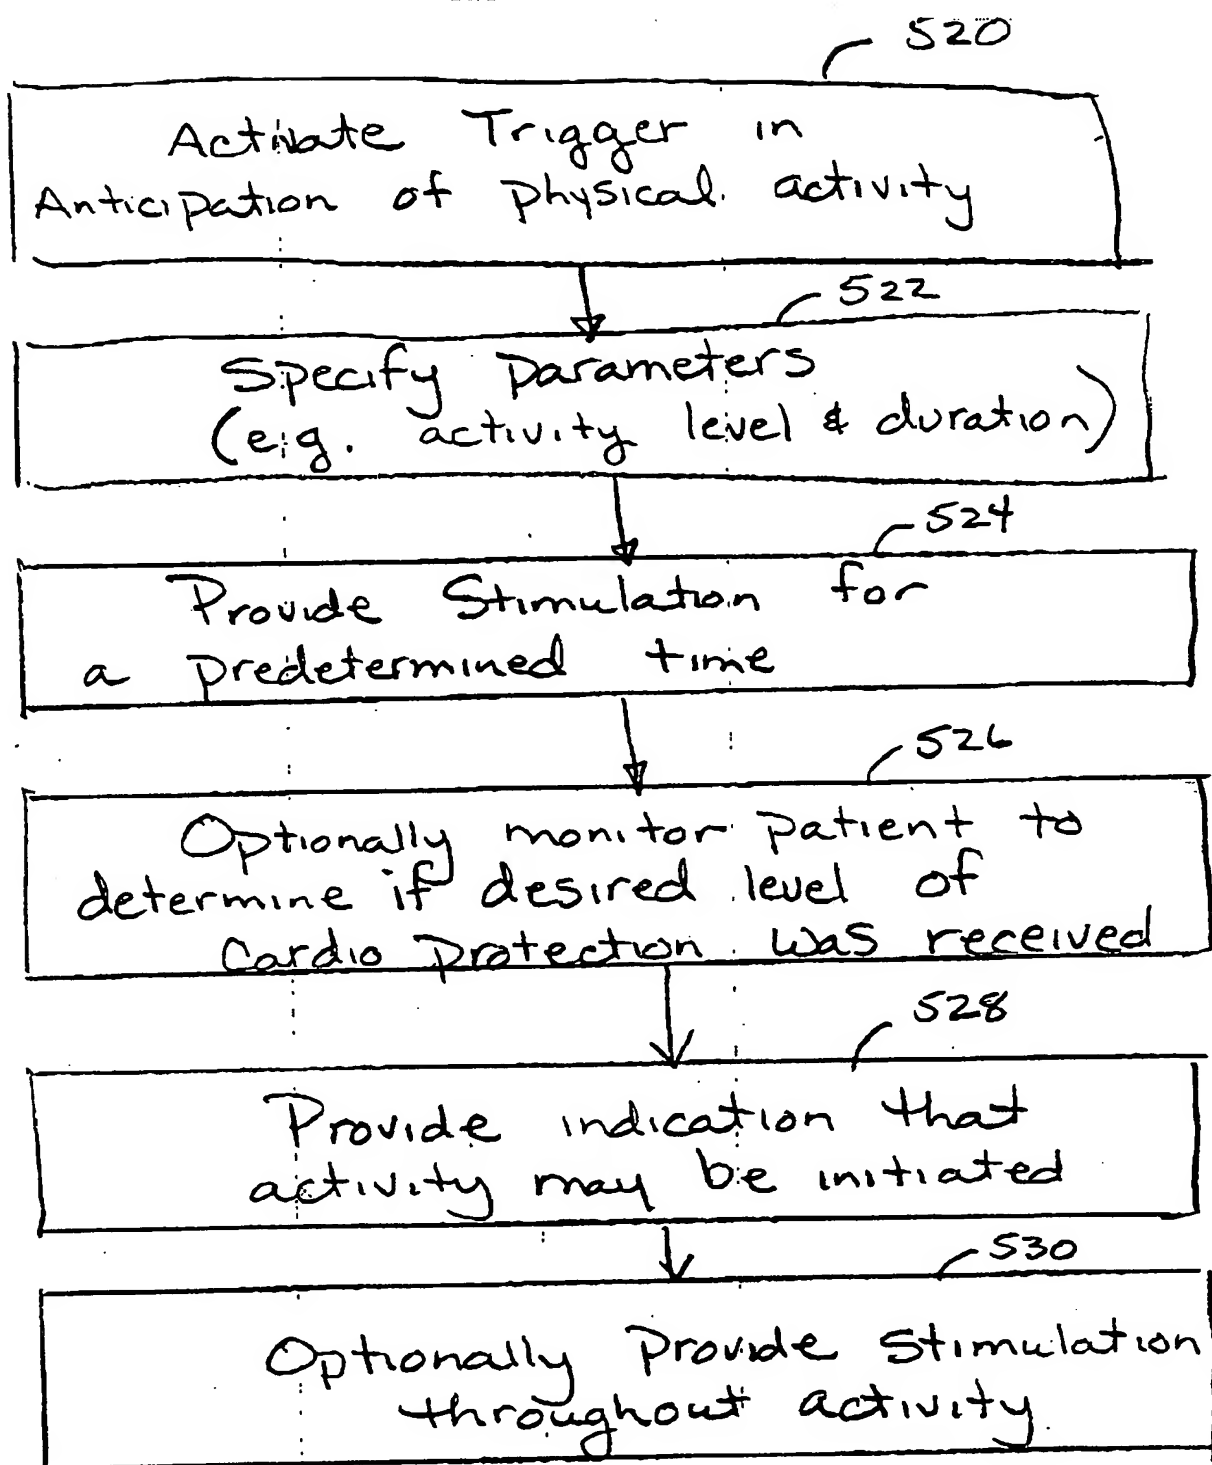 520
Activate Trigger in
Anticipation of physical activity
522
Specify parameters
(e.g. activity level & duration)
524
Provide Stimulation for
a predetermined time
526
Optionally monitor patient to
determine if desired level of
Cardio Protection was received
528
Provide indication that
activity may be initiated
530
Optionally Provide Stimulation
throughout activity